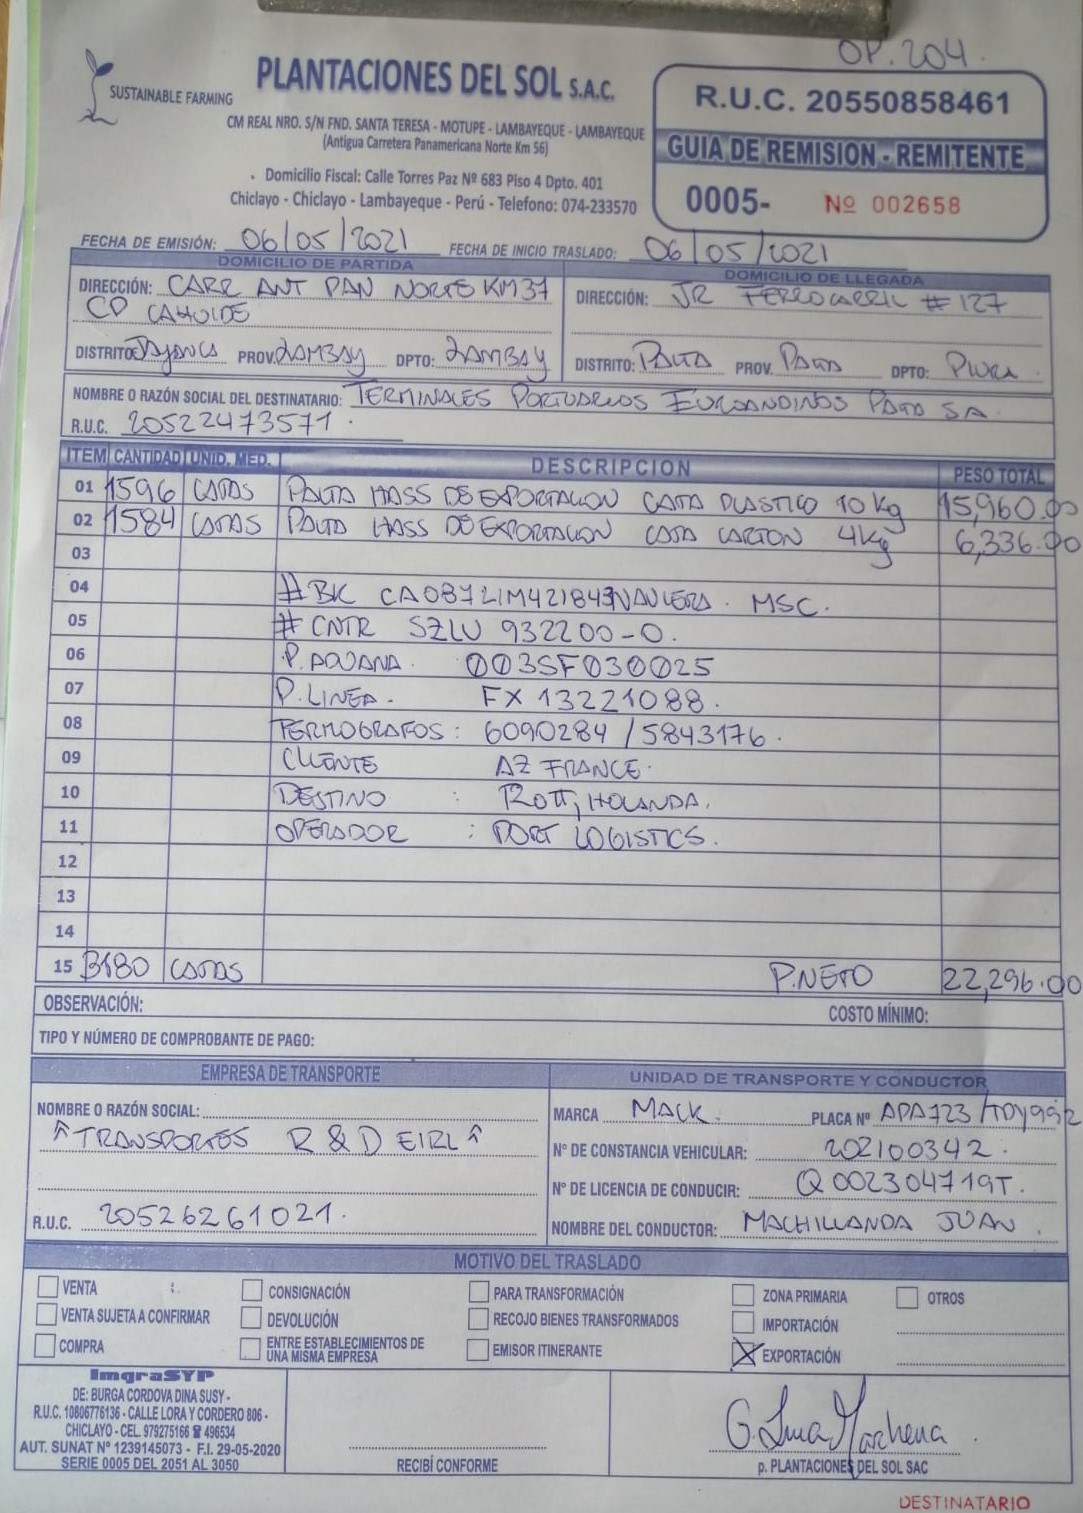 OP. 204.
SUSTAINABLE FARMING
PLANTACIONES DEL SOL S.A.C.
CM REAL NRO. S/N FND. SANTA TERESA - MOTUPE - LAMBAYEQUE - LAMBAYEQUE
(Antigua Carretera Panamericana Norte Km 56)
. Domicilio Fiscal: Calle Torres Paz Nº 683 Piso 4 Dpto. 401
Chiclayo - Chiclayo - Lambayeque - Perú - Telefono: 074-233570
R.U.C. 20550858461
GUIA DE REMISION - REMITENTE
0005- Nº 002658
FECHA DE EMISIÓN: 06/05/2021 FECHA DE INICIO TRASLADO: 06/05/2021
DOMICILIO DE PARTIDA
DIRECCIÓN: CARR ANT PAN NORTE KM37
CP CAHUIDE
DISTRITO: JAYANCA PROV. LAMBAY DPTO: LAMBAY
DOMICILIO DE LLEGADA
DIRECCIÓN: JR FERROCARRIL # 127
DISTRITO: PAITA PROV. PAITA DPTO: PIURA
NOMBRE O RAZÓN SOCIAL DEL DESTINATARIO: TERMINALES PORTUARIOS EUROANDINOS PAITA SA
R.U.C. 20522473571.
ITEM CANTIDAD UNID. MED. DESCRIPCION PESO TOTAL
01 1596 CAJAS PALTA HASS DE EXPORTACION CAJA PLASTICO 10 Kg 15,960.00
02 1584 CAJAS PALTA HASS DE EXPORTACION CAJA CARTON 4Kg 6,336.00
03
04 #BK NAVIERA. MSC.
05 # CNTR SZLU 932200-0.
06 P. ADUANA. 003SF030025
07 P. LINEA. FX 13221088.
08 TERMOGRAFOS: 6090284 / 5843176.
09 CLIENTE AZ FRANCE.
10 DESTINO : ROTT, HOLANDA.
11 OPERADOR : PORT LOGISTICS.
12
13
14
15 3180 CAJAS P.NETO 22,296.00
OBSERVACIÓN: COSTO MÍNIMO:
TIPO Y NÚMERO DE COMPROBANTE DE PAGO:
EMPRESA DE TRANSPORTE
NOMBRE O RAZÓN SOCIAL:
"TRANSPORTES R & D EIRL"
R.U.C. 20526261021.
UNIDAD DE TRANSPORTE Y CONDUCTOR
MARCA MACK. PLACA Nº APA723 / TDY992
Nº DE CONSTANCIA VEHICULAR: 202100342.
Nº DE LICENCIA DE CONDUCIR: Q002304719T.
NOMBRE DEL CONDUCTOR: MACHILLANDA JUAN.
MOTIVO DEL TRASLADO
VENTA CONSIGNACIÓN PARA TRANSFORMACIÓN ZONA PRIMARIA OTROS
VENTA SUJETA A CONFIRMAR DEVOLUCIÓN RECOJO BIENES TRANSFORMADOS IMPORTACIÓN
COMPRA ENTRE ESTABLECIMIENTOS DE UNA MISMA EMPRESA EMISOR ITINERANTE X EXPORTACIÓN
ImgraSYP
DE: BURGA CORDOVA DINA SUSY -
R.U.C. 10806776136 - CALLE LORA Y CORDERO 806 -
CHICLAYO - CEL. 979275166 ☎ 496534
AUT. SUNAT Nº 1239145073 - F.I. 29-05-2020
SERIE 0005 DEL 2051 AL 3050
RECIBÍ CONFORME
G. Marchena
p. PLANTACIONES DEL SOL SAC
DESTINATARIO